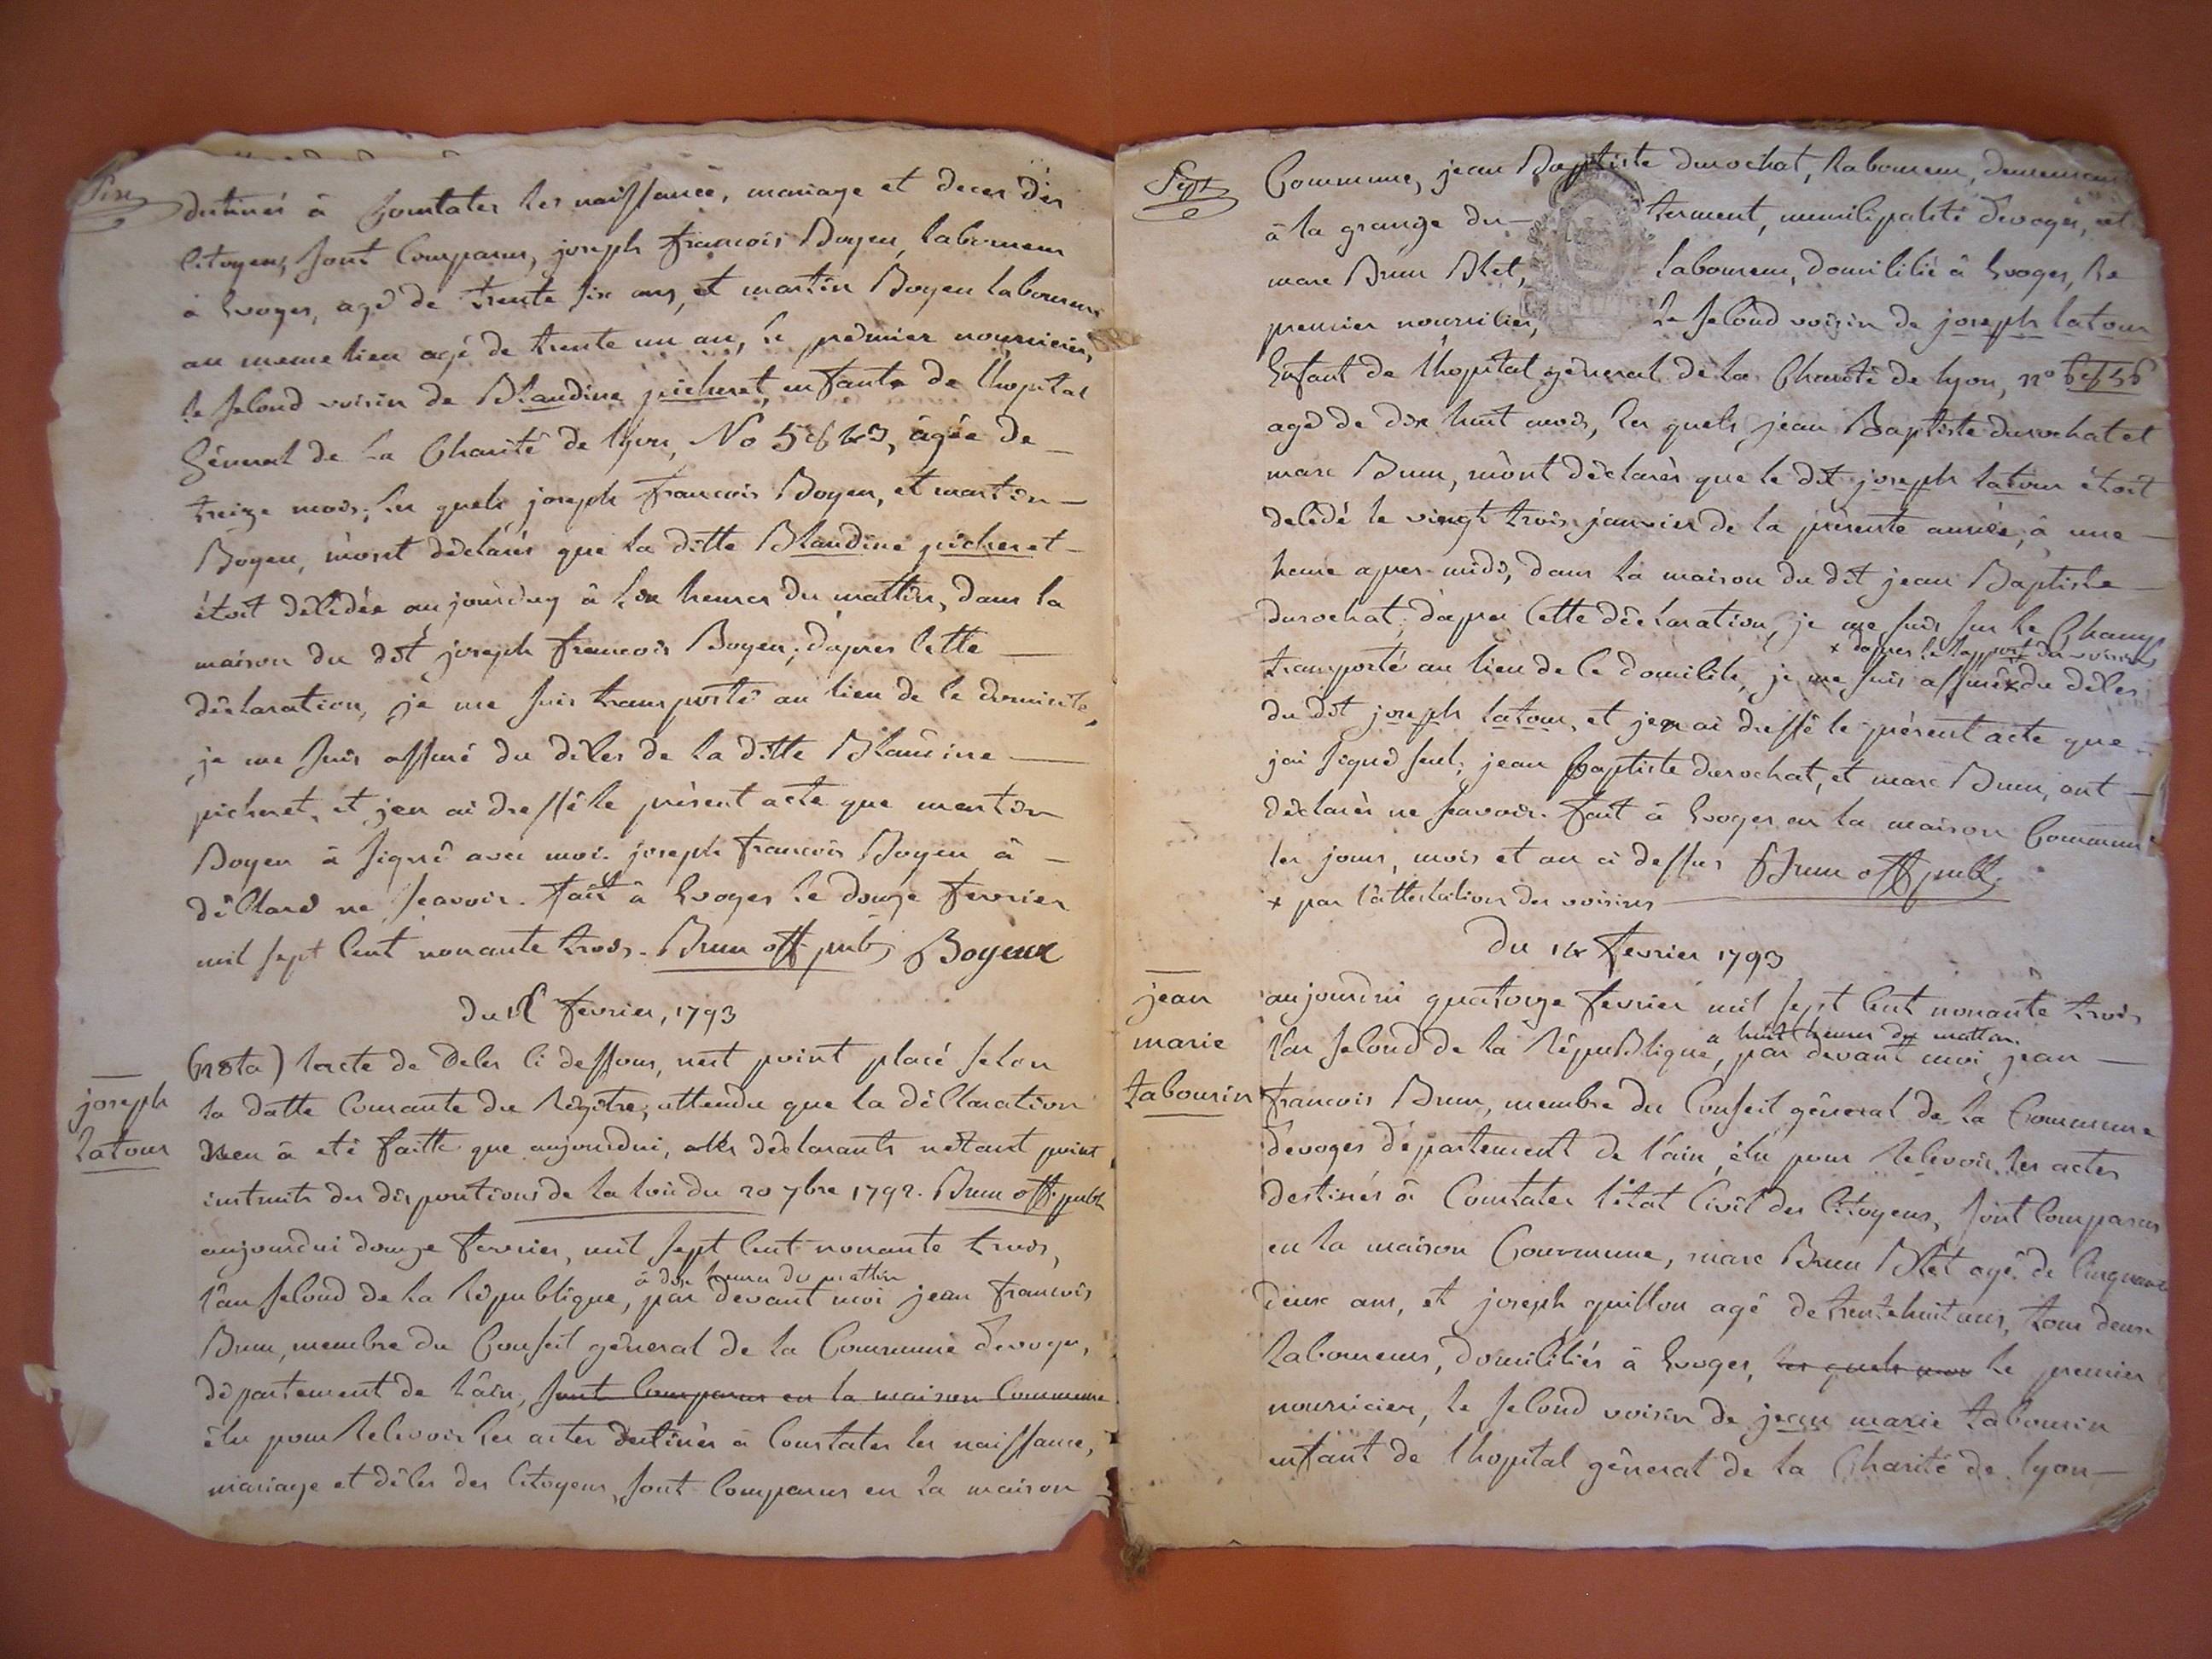 Six
destinés à Constater les naissance, mariage et deces des
Citoyens, sont Comparus, joseph francois Boyeu, laboureur
à Evoges, agé de trente six ans, et martin Boyeu laboureur
au meme lieu agé de trente un an, le premier nourricier,
le second voisin de Blandine picheret, enfante de lhopital
Géneral de la Charité de lyon, No
âgée de
treize mois; les quels joseph francois Boyeu, et martin
Boyeu, m'ont déclarés que la ditte Blandine picheret
étoit décédée aujourduy à six heures du mattin, dans la
maison du dit joseph francois Boyeu; dapres cette
déclaration, je me suis transporté au lieu de ce domicile,
je me suis assuré du déces de la ditte Blandine
picheret, et jen ai dressé le présent acte que martin
Boyeu à signé avec moi. joseph francois Boyeu à
déclaré ne scavoir. fait à Evoges le douze fevrier
mil sept Cent nonante trois. Brun off. pub. Boyeux
du 12 fevrier, 1793
joseph
latour
(nota) lacte de deces ci dessous, nest point placé selon
la datte Courante du régître, attendu que la déclaration
nen à eté faitte que aujourdui, les déclarants nétant point
instruits des dispositions de la loi du 20 7bre 1792. Brun off. publ
aujourdui douze fevrier, mil sept Cent nonante trois,
à dix heures du mattin
l'an second de la république, par devant moi jean francois
Brun, membre du Conseil géneral de la Commune devoges,
département de l'ain, sont Comparus en la maison Commune
élu pour recevoir les actes destinés à Constater les naissance,
mariage et déces des Citoyens, sont Comparus en la maison
Sept
Commune, jean Baptiste durochat, laboureur, demeurant
à la grange du terment, municipalité devoges, et
marc Brun Blet, laboureur, domicilié à Evoges, le
premier nourricier, le second voisin de joseph latour
Enfant de lhopital géneral de la Charité de lyon, n°
agé de dix huit mois, les quels jean Baptiste durochat et
marc Brun, m'ont déclarés que le dit joseph latour étoit
décédé le vingt trois janvier de la présente année, à une
heure apres midi, dans la maison du dit jean Baptiste
durochat; dapres Cette déclaration, je me suis sur le Champ
x dapres le rapport des voisins
transporté au lieu de ce domicile, je me suis assuré x du déces
du dit joseph latour, et jen ai dressé le présent acte que
jai signé seul; jean Baptiste durochat, et marc Brun, ont
déclarés ne scavoir. fait à Evoges en la maison Commune
les jours, mois et an ci dessus Brun off. publ.
x par l'attestation des voisins
du 14 fevrier 1793
jean
marie
tabourin
aujourdui quatorze fevrier mil sept Cent nonante trois
à huit heures du mattin
l'an second de la république, par devant moi jean
francois Brun, membre du Conseil géneral de la Commune
devoges département de l'ain, élu pour recevoir les actes
destinés à Constater l'état Civil des Citoyens, sont Comparus
en la maison Commune, marc Brun Blet agé de Cinquante
deux ans, et joseph guillon agé de trente huit ans, tous deux
laboureurs, domiciliés à Evoges, les quels mon le premier
nourricier, le second voisin de jean marie tabourin
enfant de lhopital géneral de la Charité de lyon